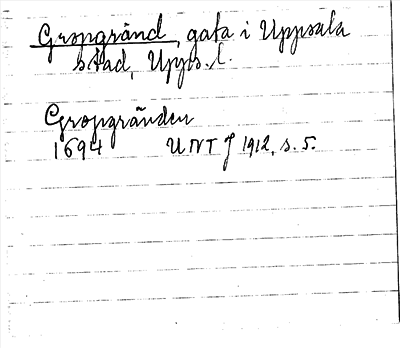 Gropgränd, gata i Uppsala
stad, Uppl. l.
Gropgränden
1694 UNT J 1912, s. 5.